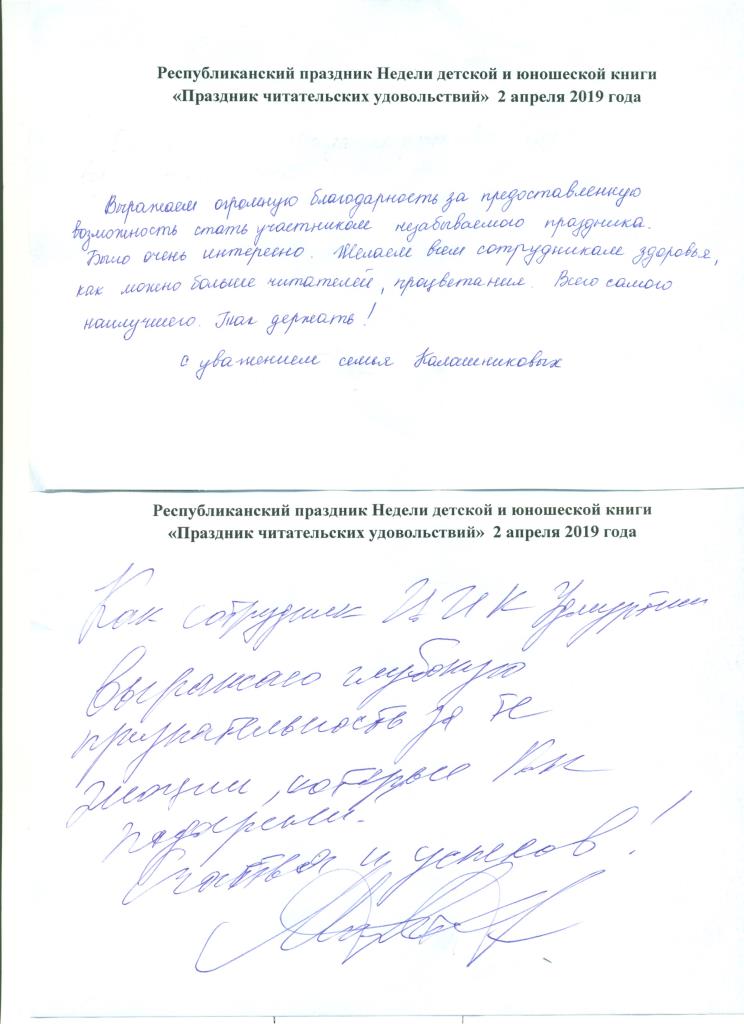 Республиканский праздник Недели детской и юношеской книги
«Праздник читательских удовольствий» 2 апреля 2019 года
Выражаем огромную благодарность за предоставленную
возможность стать участником незабываемого праздника.
Было очень интересно. Желаем всем сотрудникам здоровья,
как можно больше читателей, процветания. Всего самого
наилучшего. Так держать!
С уважением семья Калашниковых
Республиканский праздник Недели детской и юношеской книги
«Праздник читательских удовольствий» 2 апреля 2019 года
Как сотрудник ЦИК Удмуртии
выражаю глубокую
признательность за те
эмоции, которые
подарили.
Счастья и успехов!